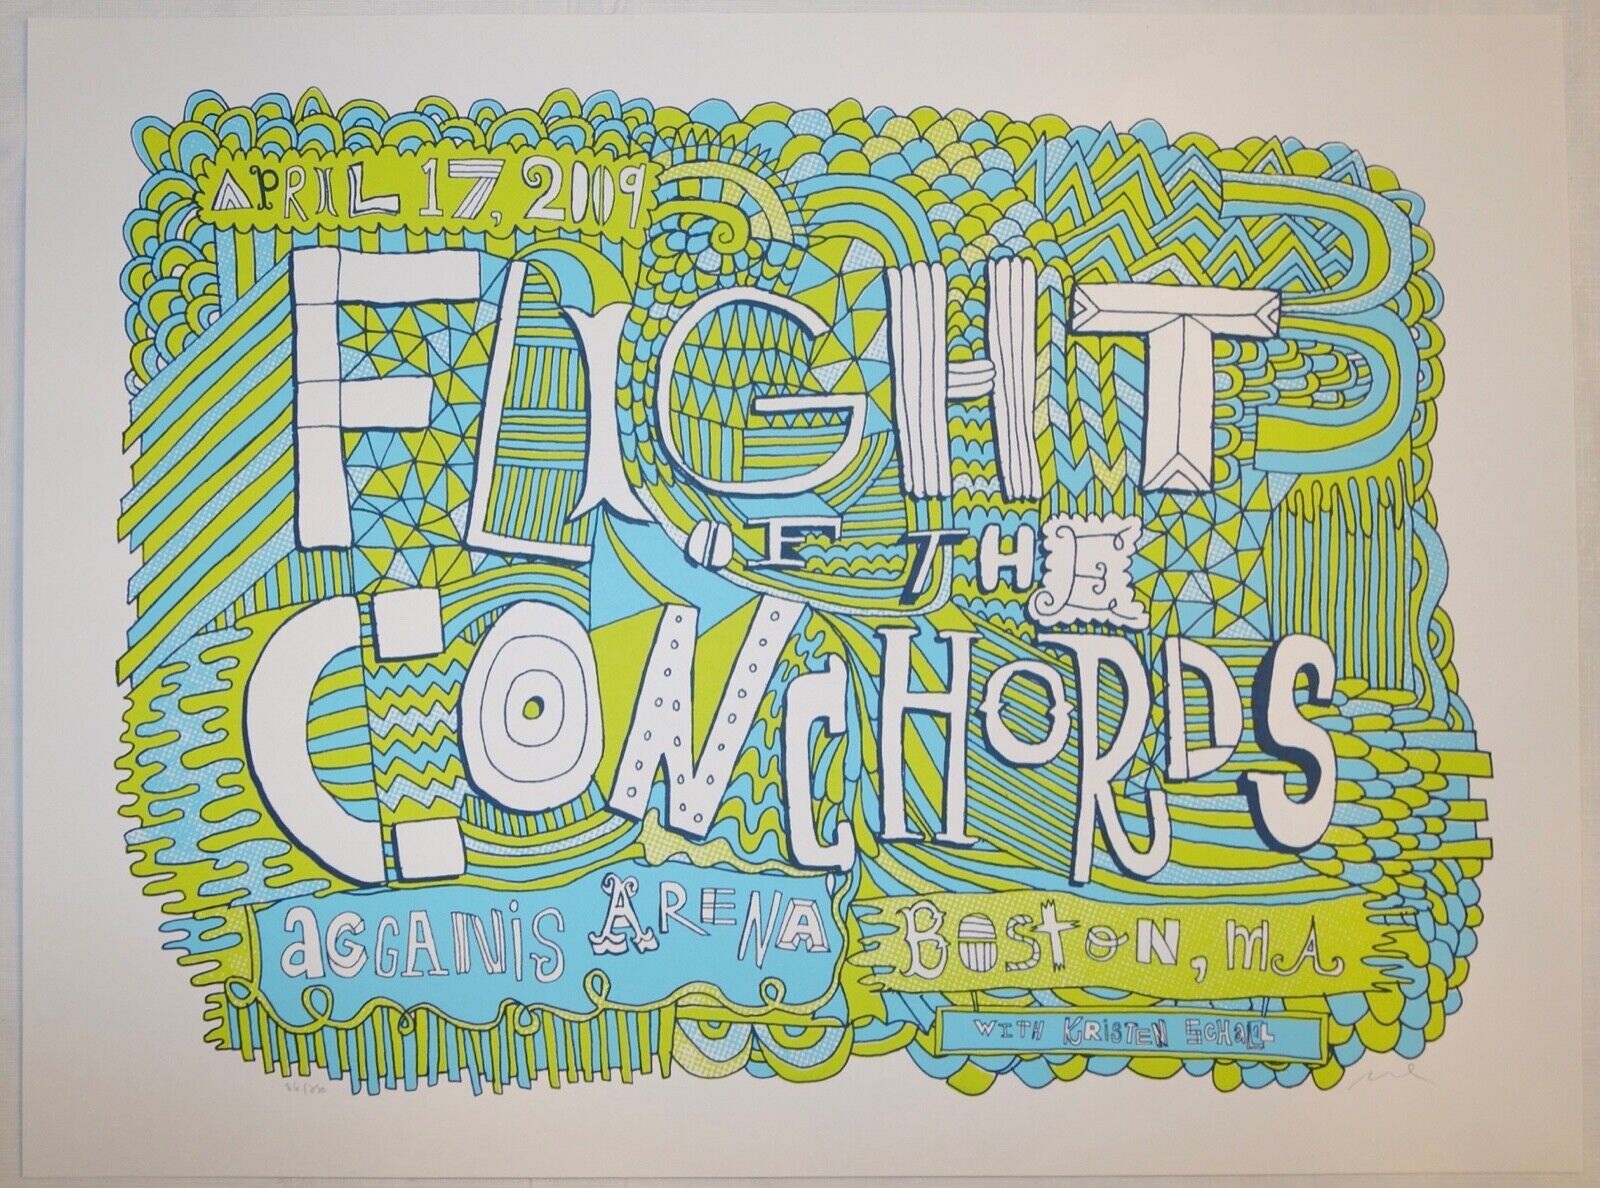 APRIL 17, 2009
FLIGHT
OF THE
CONCHORDS
AGGANIS ARENA
BOSTON, MA
WITH KRISTEN SCHAAL
86/250